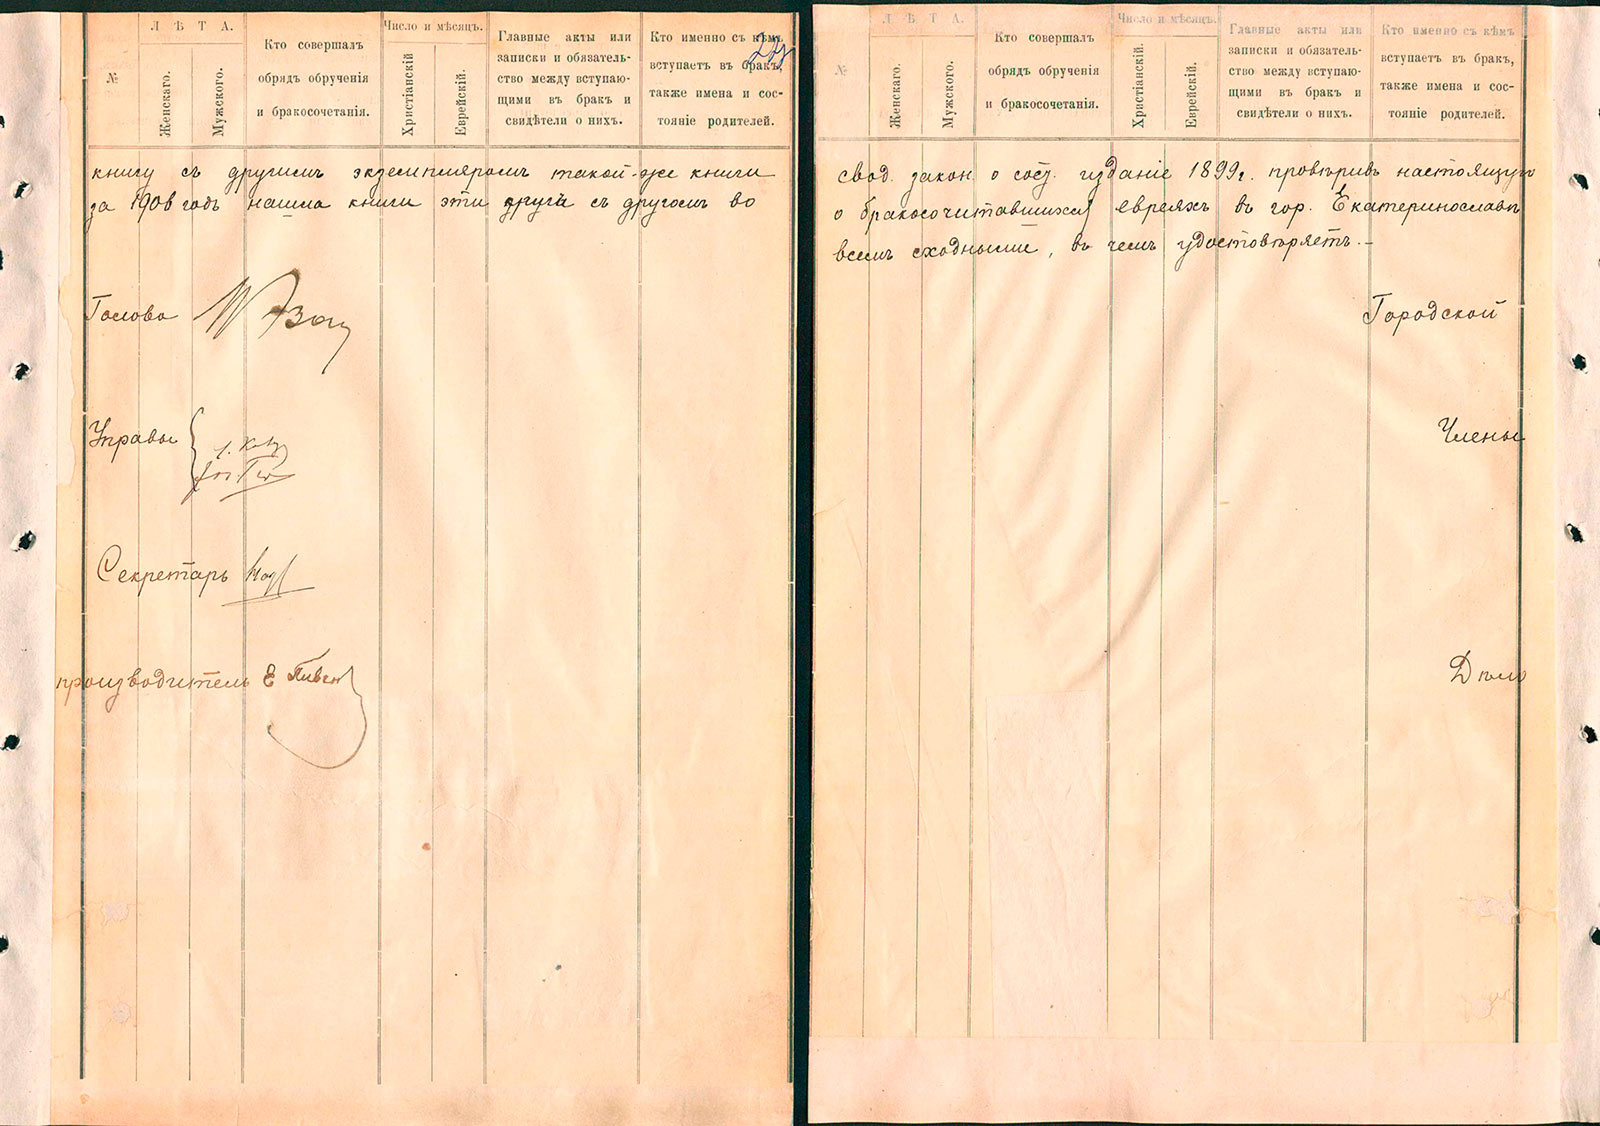 №
Л Ѣ Т А.
Женскаго.
Мужского.
Кто совершалъ
обрядъ обрученія
и бракосочетанія.
Число и мѣсяцъ.
Христіанскій
Еврейскій.
Главные акты или
записки и обязатель-
ство между вступаю-
щими въ бракъ и
свидѣтели о нихъ.
Кто именно съ кѣмъ
вступаетъ въ бракъ,
также имена и сос-
тояніе родителей.
книгу съ другимъ экземпляромъ такой-же книги
за 1908 годъ нашла книги эти другъ съ другомъ во
Голова
Управы
Секретарь
производитель Е Пивен
№
Л Ѣ Т А.
Женскаго.
Мужского.
Кто совершалъ
обрядъ обрученія
и бракосочетанія.
Число и мѣсяцъ.
Христіанскій.
Еврейскій.
Главные акты или
записки и обязатель-
ство между вступаю-
щими въ бракъ и
свидѣтели о нихъ.
Кто именно съ кѣмъ
вступаетъ въ бракъ,
также имена и сос-
тояніе родителей.
свод. закон. о сост. изданіе 1899г. провѣривъ настоящую
о бракосочитавшихся евреяхъ въ гор. Екатеринославѣ
всемъ сходными, въ чемъ удостовѣряетъ.-
Городской
Члены
Дѣло